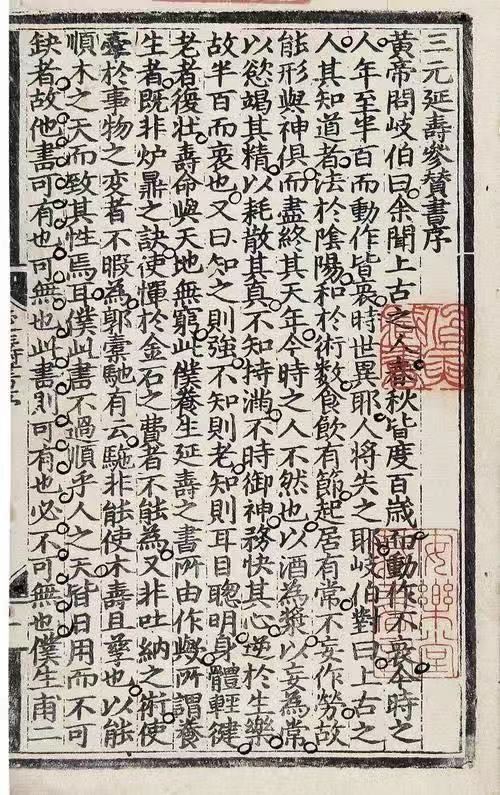 三元延壽參贊書序
黃帝問岐伯曰余聞上古之人春秋皆度百歲而動作不衰今時之
人年至半百而動作皆衰時世異耶人將失之耶岐伯對曰上古之
人其知道者法於陰陽和於術數食飲有節起居有常不妄作勞故
能形與神俱而盡終其天年今時之人不然也以酒為漿以妄為常
以慾竭其精以耗散其真不知持滿不時御神務快其心逆於生樂
故半百而衰也又曰知之則強不知則老知則耳目聰明身體輕健
老者復壯壽命與天地無窮此僕養生延壽之書所由作與所謂養
生者既非炉鼎之訣使惲於金石之費者不能為又非吐納之術使
牽於事物之变者不暇為郭橐馳有云馳非能使木壽且孳也以能
順木之天而致其性焉耳僕此書不過順乎人之天皆日用而不可
缺者故他書可有也可無也此書則可有也必不可無也僕生甫二